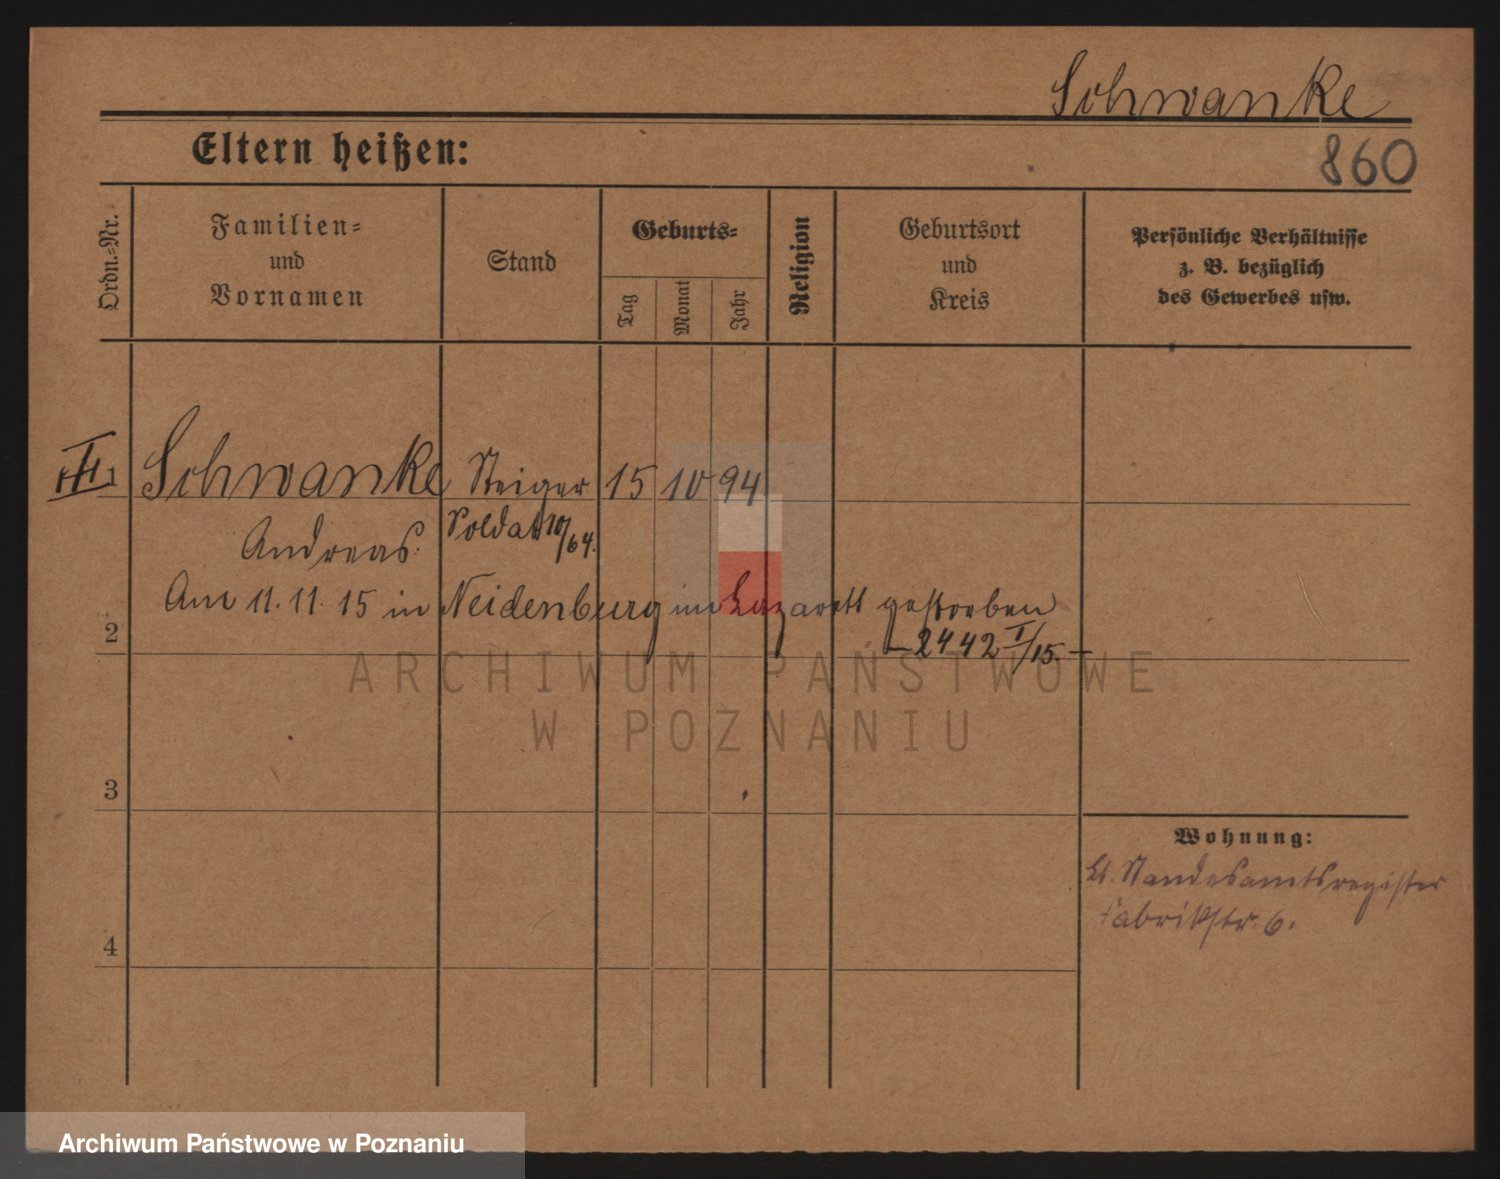 Schwanke
Eltern heißen:
860
Ordn.=Nr.
Familien=
und
Vornamen
Stand
Geburts=
Tag
Monat
Jahr
Religion
Geburtsort
und
Kreis
Persönliche Verhältnisse
z. B. bezüglich
des Gewerbes usw.
1
Schwanke Steiger 15 10 94
Andreas. Soldat 10/64.
Am 11. 11. 15 in Neidenburg im Lazarett gestorben
2
– 2442 I/15. –
ARCHIWUM PAŃSTWOWE
W POZNANIU
3
Wohnung:
Lt. Standesamtsregister
Fabrikstr. 6.
4
Archiwum Państwowe w Poznaniu